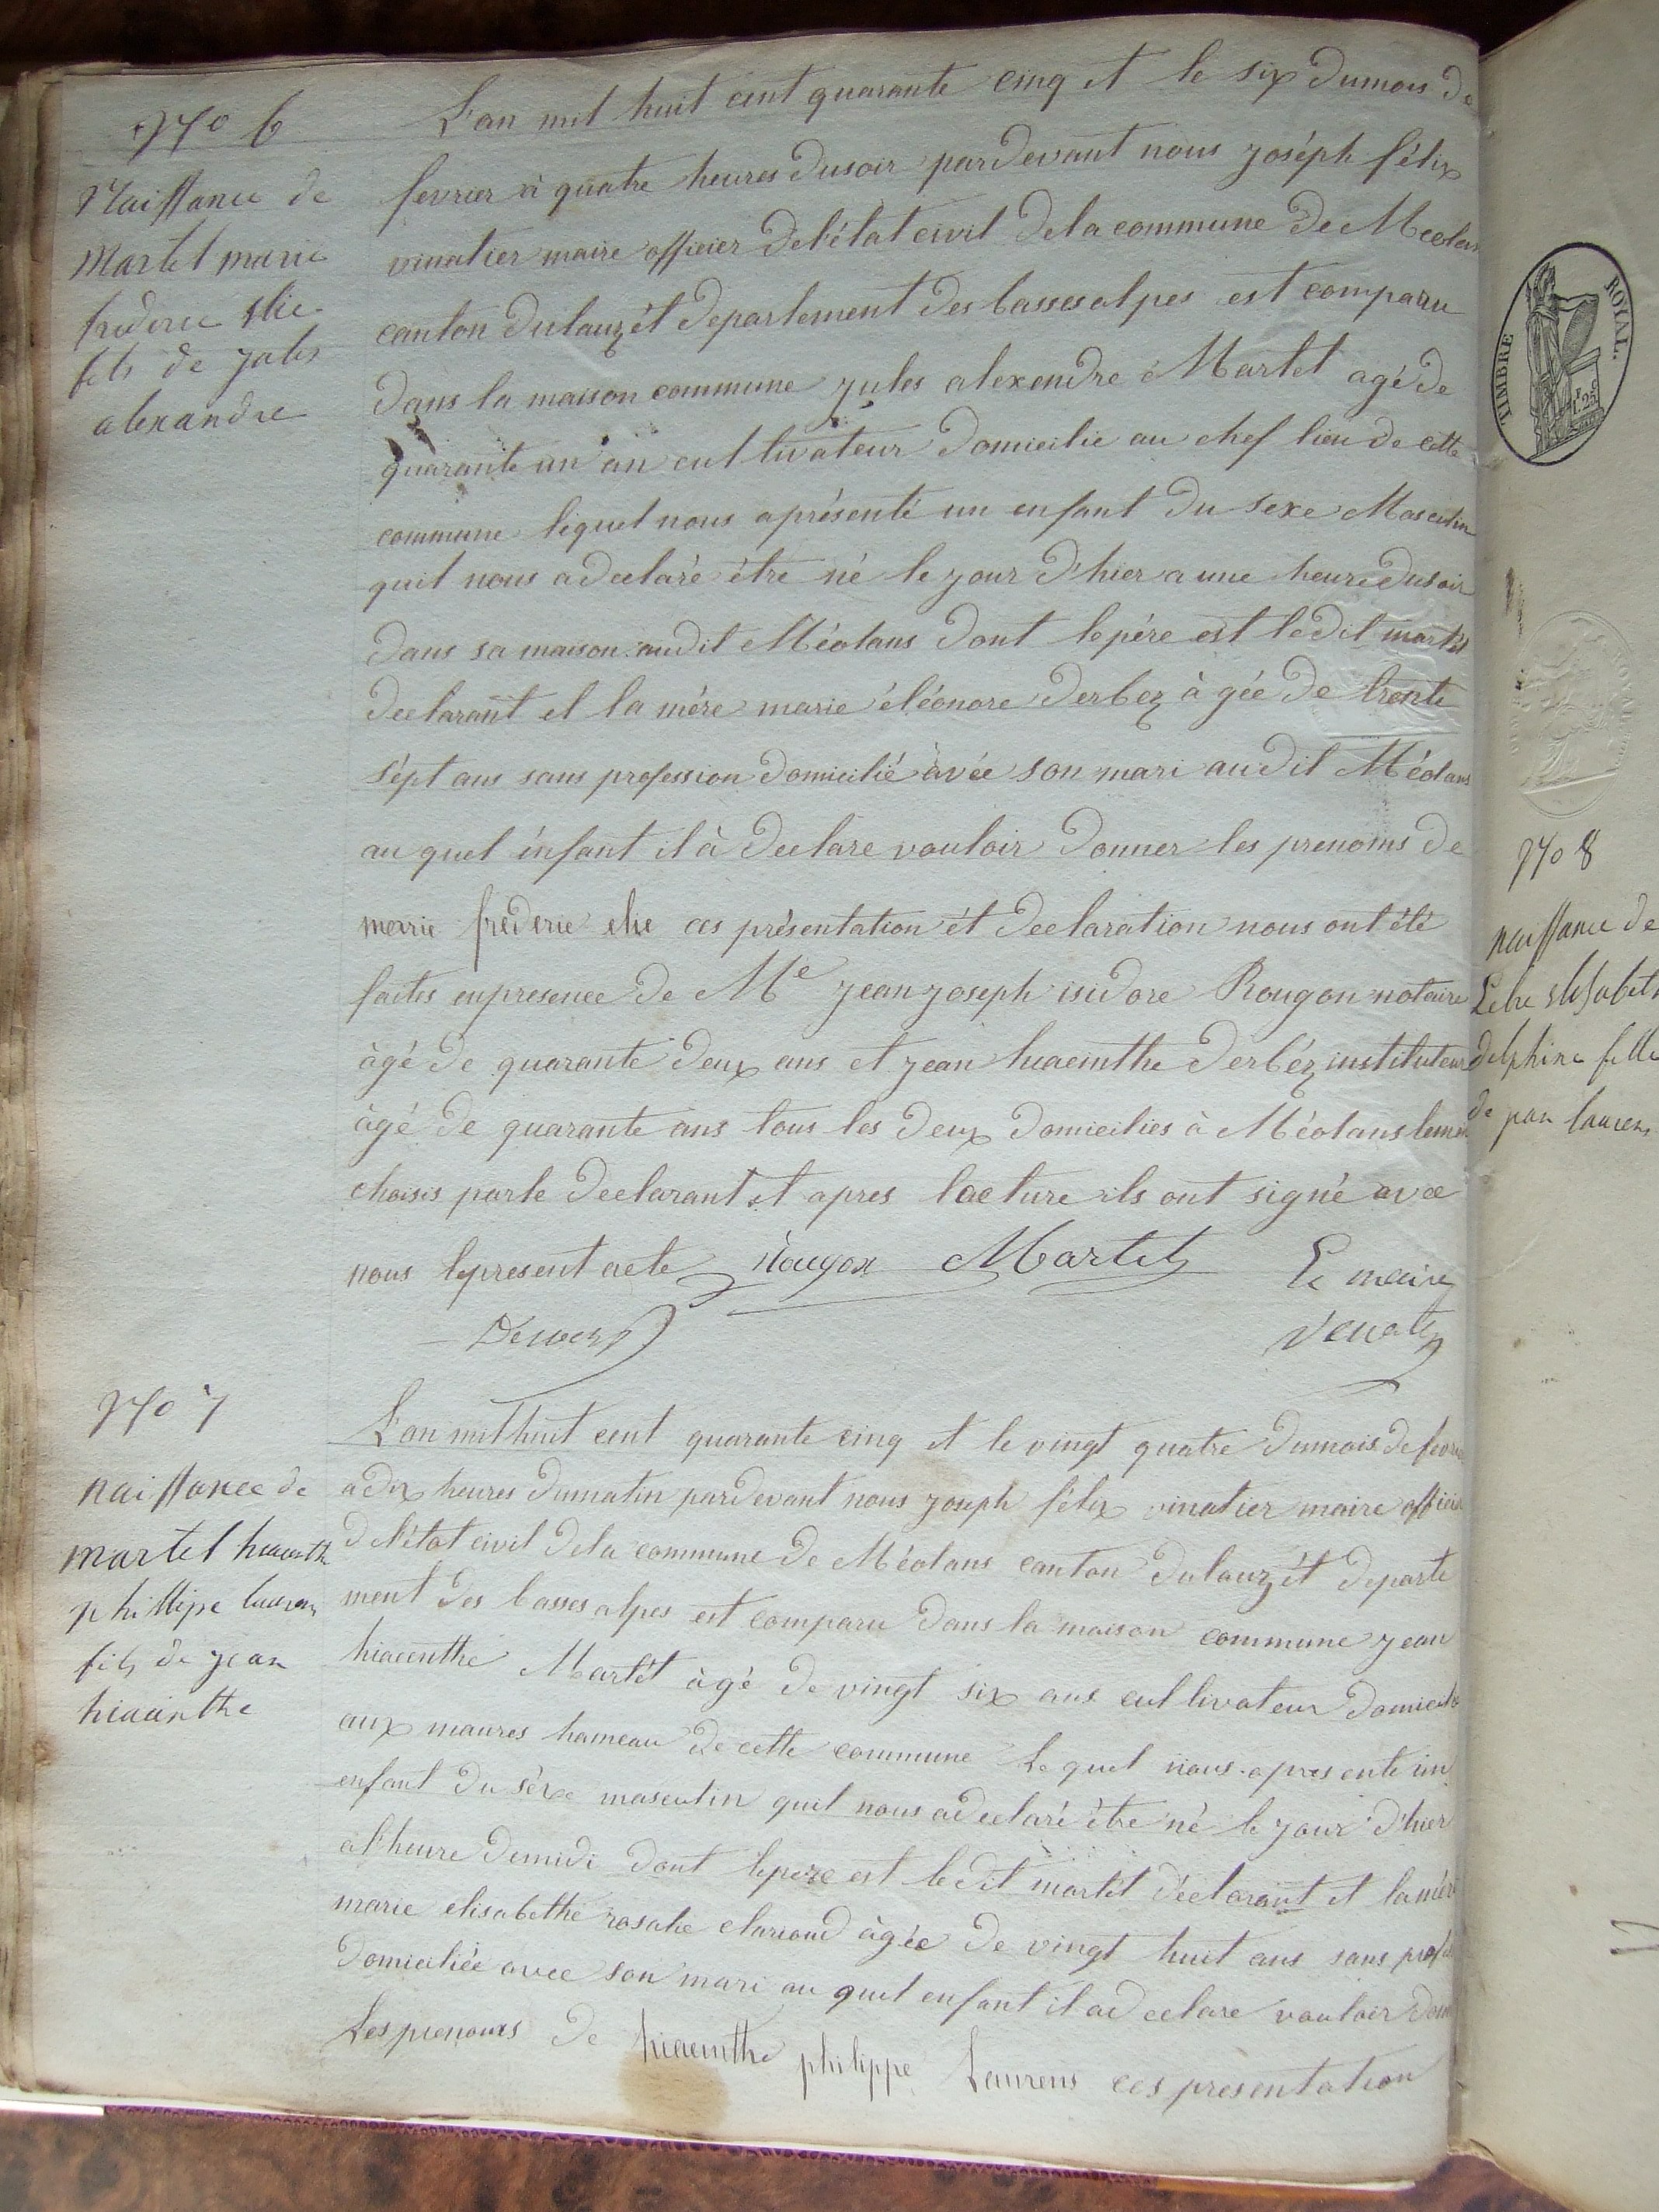 No 6
Naissance de
Martel marie
frederic elie
fils de jules
alexandre
L'an mil huit cent quarante cinq et le six dumois de
fevrier à quatre heures dusoir pardevant nous joséph félix
vinatier maire officier de l'état civil dela commune de Meolans
canton dulauzét departement des basses alpes est comparu
dans la maison commune jules alexendre Martel agé de
quarante un an cultivateur domicilié au chef lieu de cette
commune lequel nous aprésenté un enfant du sexe Masculin
quil nous a declaré être né le jour d'hier a une heure dusoir
dans sa maison audit Méolans dont lepére est ledit martel
declarant et la mére marie éléonore derbez àgée de trente
sépt ans sans profession domicilié avéc son mari audit Méolans
au quel énfant il à declare vouloir donner les prenoms de
marie frederic elie ces présentation ét declaration nous ont été
faites enpresence de Me jean joseph isidore Rougon notaire
àgé de quarante deux ans et jean hiacinthe derbéz instituteur
àgé de quarante ans tous les deux domicilies à Méolans temoins
choisis parle declarant et apres lacture ils ont signé avec
nous lepresent acte Rougon Martel Le maire
Derbez Vinatier
No 7
naissance de
martel hiacinthe
phillipe laurens
fils de jean
hiacinthe
L'an mil huit cent quarante cinq et le vingt quatre dumois de fevrier
adix heures dumatin pardevant nous joseph félix vinatier maire officier
de l'état civil dela commune de Méolans canton dulauzét departe
ment des basses alpes est comparu dans la maison commune jean
hiacenthe Martél àgé de vingt six ans cultivateur domicilié
aux maures hameau de cette commune lequel nous apresenté un
enfant du séxe masculin quil nous adeclaré être né le jour d'hier
al'heure demidi dont lepere est ledit martél déclarant et lamére
marie elisabethe rosalie clariond àgée de vingt huit ans sans profe
domiciliée avec son mari au quel enfant il adeclare vouloir don
Les prenoms de hiacinthe philippe Laurens ces presentation
TIMBRE ROYAL.
1f.25c
No 8
naissance de
elisabeth
delphine fille
de laurens